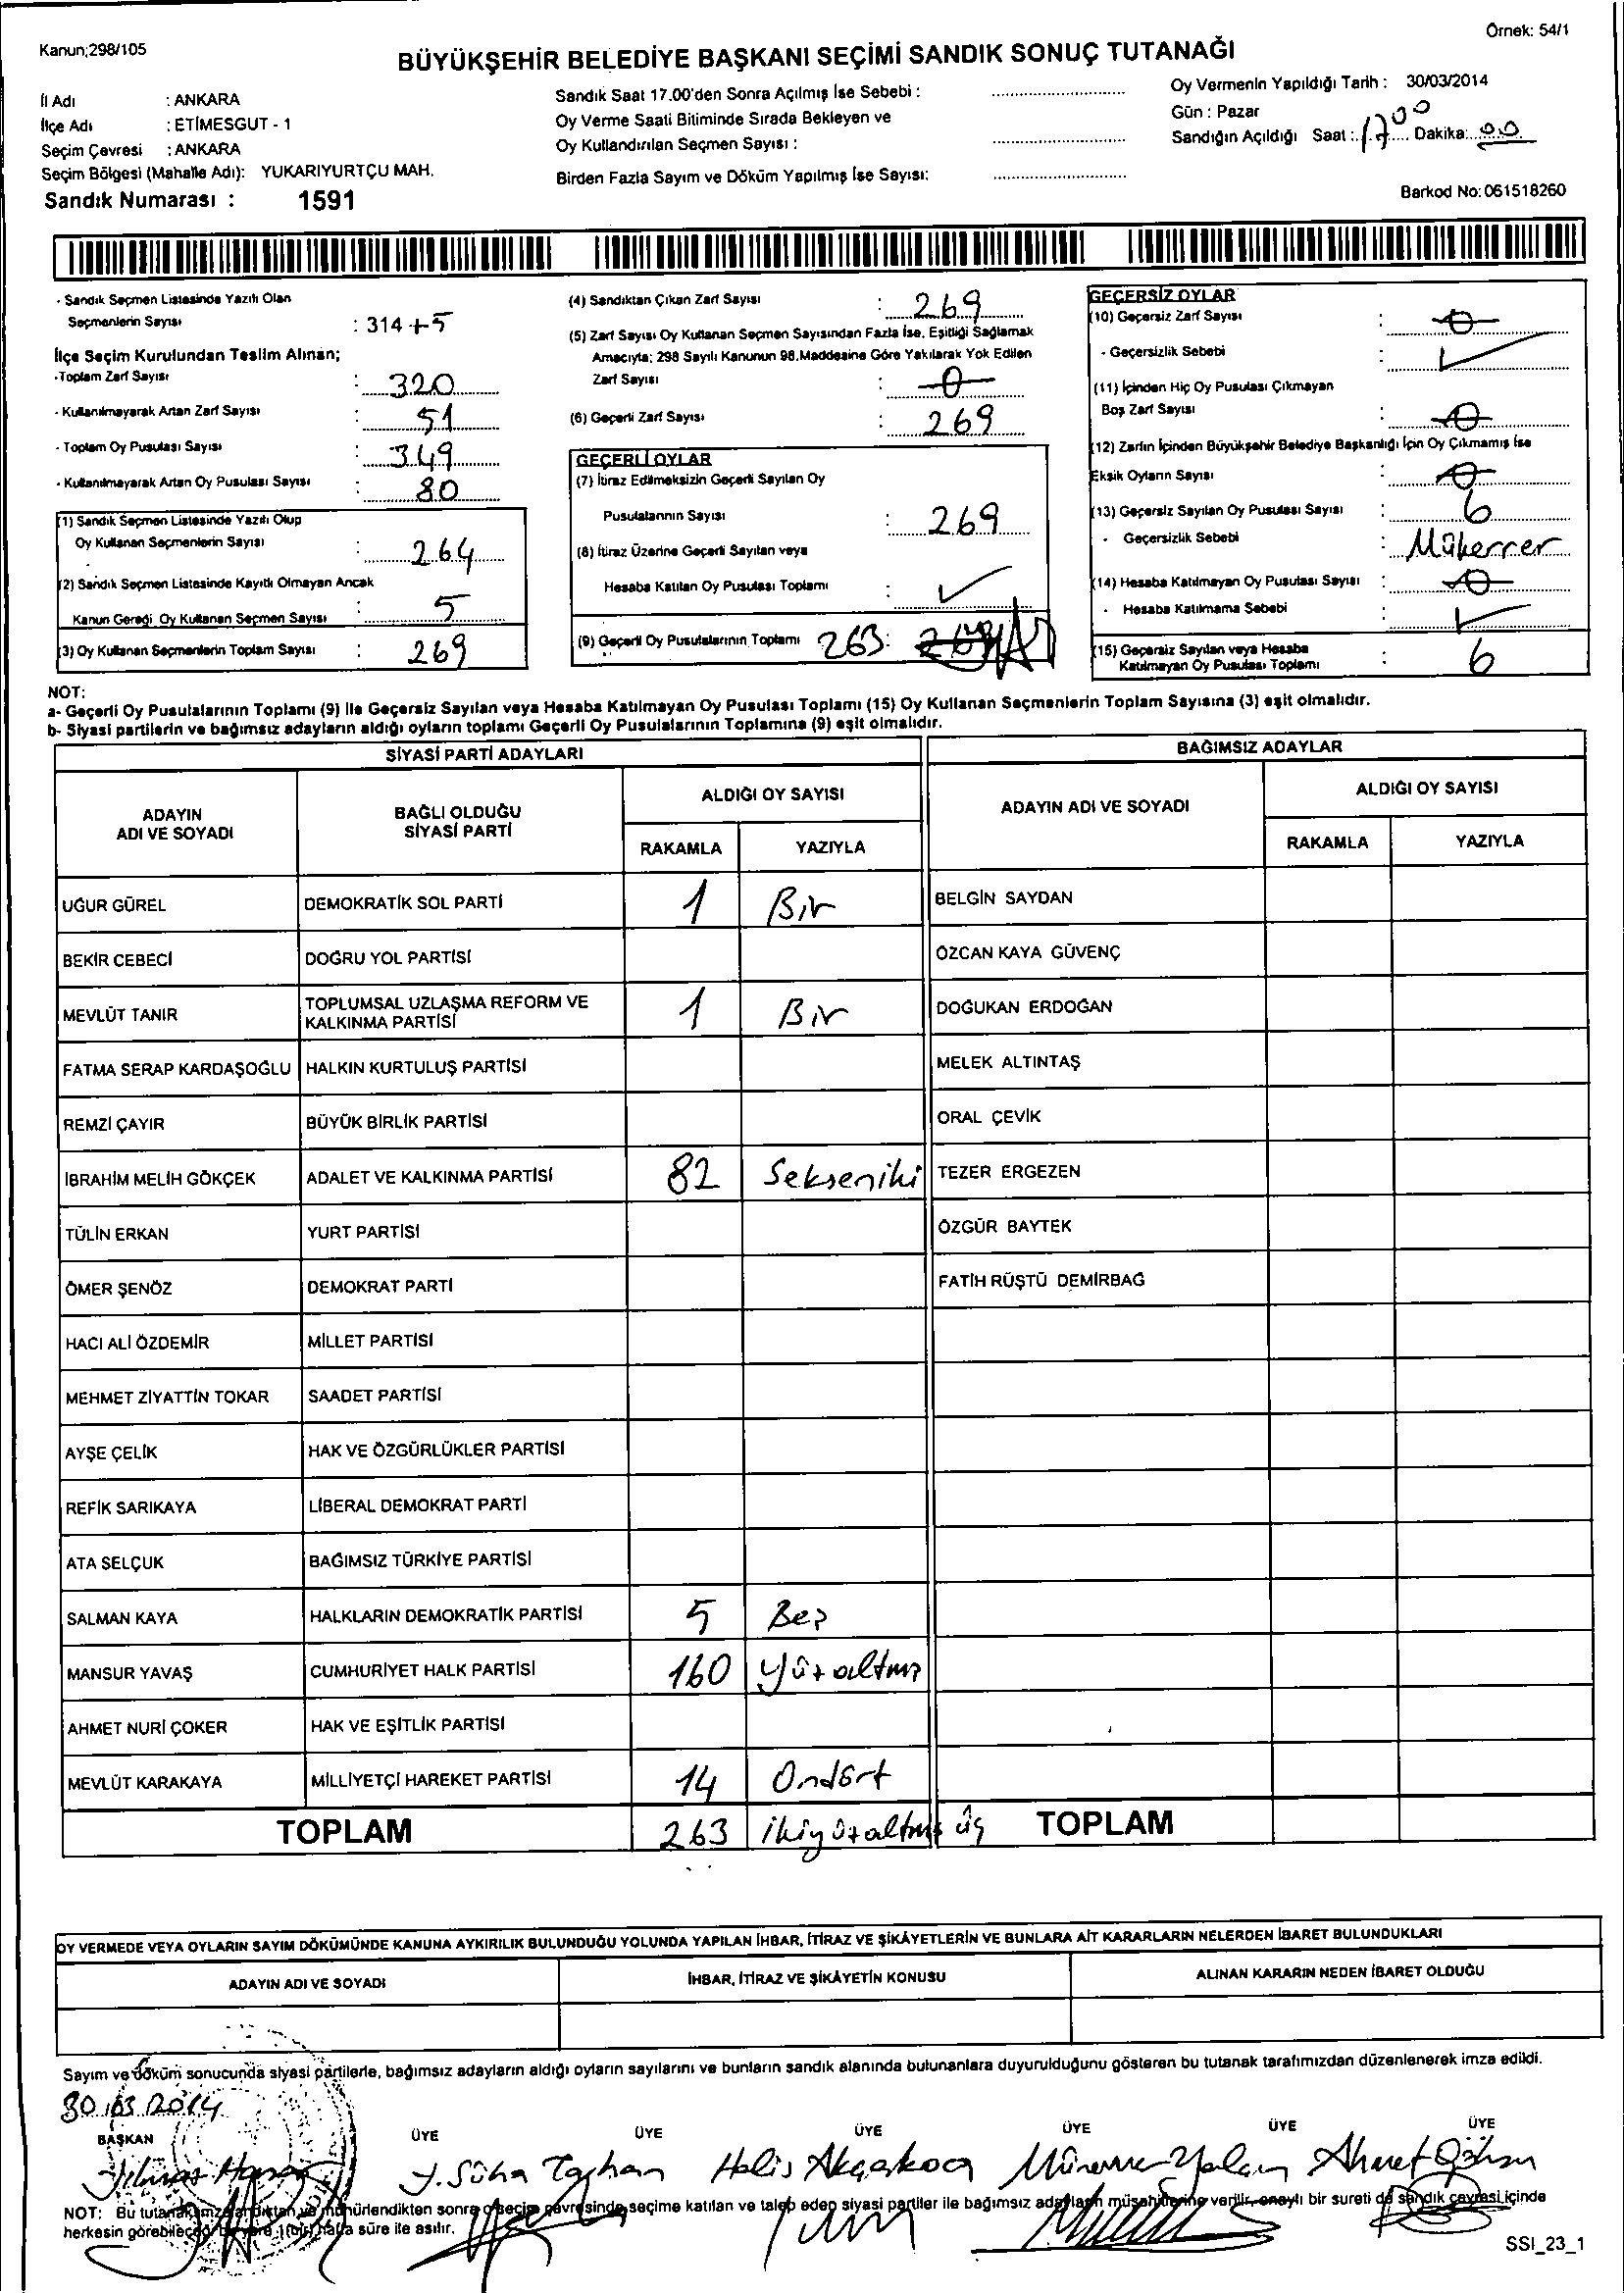 Kanun;298/105
Örnek: 54/1
BÜYÜKŞEHİR BELEDİYE BAŞKANI SEÇİMİ SANDIK SONUÇ TUTANAĞI
İl Adı : ANKARA
İlçe Adı : ETİMESGUT - 1
Seçim Çevresi : ANKARA
Seçim Bölgesi (Mahalle Adı): YUKARIYURTÇU MAH.
Sandık Numarası : 1591
Sandık Saat 17.00'den Sonra Açılmış İse Sebebi :
Oy Verme Saati Bitiminde Sırada Bekleyen ve
Oy Kullandırılan Seçmen Sayısı :
Birden Fazla Sayım ve Döküm Yapılmış İse Sayısı:
Oy Vermenin Yapıldığı Tarih : 30/03/2014
Gün : Pazar
Sandığın Açıldığı Saat : 1700 Dakika: 00
Barkod No: 061518260
- Sandık Seçmen Listesinde Yazılı Olan
Seçmenlerin Sayısı : 314 +5
İlçe Seçim Kurulundan Teslim Alınan;
-Toplam Zarf Sayısı : 320
- Kullanılmayarak Artan Zarf Sayısı : 51
- Toplam Oy Pusulası Sayısı : 349
- Kullanılmayarak Artan Oy Pusulası Sayısı : 80
(1) Sandık Seçmen Listesinde Yazılı Olup
Oy Kullanan Seçmenlerin Sayısı : 264
(2) Sandık Seçmen Listesinde Kayıtlı Olmayan Ancak
Kanun Gereği Oy Kullanan Seçmen Sayısı : 5
(3) Oy Kullanan Seçmenlerin Toplam Sayısı : 269
(4) Sandıktan Çıkan Zarf Sayısı : 269
(5) Zarf Sayısı Oy Kullanan Seçmen Sayısından Fazla İse, Eşitliği Sağlamak
Amacıyla; 298 Sayılı Kanunun 98.Maddesine Göre Yakılarak Yok Edilen
Zarf Sayısı : 0
(6) Geçerli Zarf Sayısı : 269
GEÇERLİ OYLAR
(7) İtiraz Edilmeksizin Geçerli Sayılan Oy
Pusulalarının Sayısı : 269
(8) İtiraz Üzerine Geçerli Sayılan veya
Hesaba Katılan Oy Pusulası Toplamı :
(9) Geçerli Oy Pusulalarının Toplamı 263 :
GEÇERSİZ OYLAR
(10) Geçersiz Zarf Sayısı : 0
- Geçersizlik Sebebi :
(11) İçinden Hiç Oy Pusulası Çıkmayan
Boş Zarf Sayısı : 0
(12) Zarfın İçinden Büyükşehir Belediye Başkanlığı İçin Oy Çıkmamış İse
Eksik Oyların Sayısı : 0
(13) Geçersiz Sayılan Oy Pusulası Sayısı : 6
- Geçersizlik Sebebi : Mükerrer
(14) Hesaba Katılmayan Oy Pusulası Sayısı : 0
- Hesaba Katılmama Sebebi :
(15) Geçersiz Sayılan veya Hesaba
Katılmayan Oy Pusulası Toplamı : 6
NOT:
a- Geçerli Oy Pusulalarının Toplamı (9) İle Geçersiz Sayılan veya Hesaba Katılmayan Oy Pusulası Toplamı (15) Oy Kullanan Seçmenlerin Toplam Sayısına (3) eşit olmalıdır.
b- Siyasi partilerin ve bağımsız adayların aldığı oyların toplamı Geçerli Oy Pusulalarının Toplamına (9) eşit olmalıdır.
SİYASİ PARTİ ADAYLARI BAĞIMSIZ ADAYLAR
ADAYIN ADI VE SOYADI BAĞLI OLDUĞU SİYASİ PARTİ ALDIĞI OY SAYISI ADAYIN ADI VE SOYADI ALDIĞI OY SAYISI
RAKAMLA YAZIYLA RAKAMLA YAZIYLA
UĞUR GÜREL DEMOKRATİK SOL PARTİ 1 Bir BELGİN SAYDAN
BEKİR CEBECİ DOĞRU YOL PARTİSİ ÖZCAN KAYA GÜVENÇ
MEVLÜT TANIR TOPLUMSAL UZLAŞMA REFORM VE KALKINMA PARTİSİ 1 Bir DOĞUKAN ERDOĞAN
FATMA SERAP KARDAŞOĞLU HALKIN KURTULUŞ PARTİSİ MELEK ALTINTAŞ
REMZİ ÇAYIR BÜYÜK BİRLİK PARTİSİ ORAL ÇEVİK
İBRAHİM MELİH GÖKÇEK ADALET VE KALKINMA PARTİSİ 82 Sekseniki TEZER ERGEZEN
TÜLİN ERKAN YURT PARTİSİ ÖZGÜR BAYTEK
ÖMER ŞENÖZ DEMOKRAT PARTİ FATİH RÜŞTÜ DEMİRBAĞ
HACI ALİ ÖZDEMİR MİLLET PARTİSİ
MEHMET ZİYATTİN TOKAR SAADET PARTİSİ
AYŞE ÇELİK HAK VE ÖZGÜRLÜKLER PARTİSİ
REFİK SARIKAYA LİBERAL DEMOKRAT PARTİ
ATA SELÇUK BAĞIMSIZ TÜRKİYE PARTİSİ
SALMAN KAYA HALKLARIN DEMOKRATİK PARTİSİ 5 Beş
MANSUR YAVAŞ CUMHURİYET HALK PARTİSİ 160 Yüzaltmış
AHMET NURİ ÇOKER HAK VE EŞİTLİK PARTİSİ
MEVLÜT KARAKAYA MİLLİYETÇİ HAREKET PARTİSİ 14 Ondört
TOPLAM 263 ikiyüzaltmış üç TOPLAM
OY VERMEDE VEYA OYLARIN SAYIM DÖKÜMÜNDE KANUNA AYKIRILIK BULUNDUĞU YOLUNDA YAPILAN İHBAR, İTİRAZ VE ŞİKÂYETLERİN VE BUNLARA AİT KARARLARIN NELERDEN İBARET BULUNDUKLARI
ADAYIN ADI VE SOYADI İHBAR, İTİRAZ VE ŞİKÂYETİN KONUSU ALINAN KARARIN NEDEN İBARET OLDUĞU
Sayım ve döküm sonucunda siyasi partilerle, bağımsız adayların aldığı oyların sayılarını ve bunların sandık alanında bulunanlara duyurulduğunu gösteren bu tutanak tarafımızdan düzenlenerek imza edildi.
30.03.2014
BAŞKAN ÜYE ÜYE ÜYE ÜYE ÜYE ÜYE
Y. Süha Halis Akçakoca Münevver Yalçın Ahmet
NOT: Bu tutanak imzalandıktan ve mühürlendikten sonra o seçim çevresinde seçime katılan ve talep eden siyasi partiler ile bağımsız adayların müşahitlerine verilir, onaylı bir sureti de sandık çevresi içinde
herkesin görebileceği bir yere 1(bir) hafta süre ile asılır.
SSI_23_1